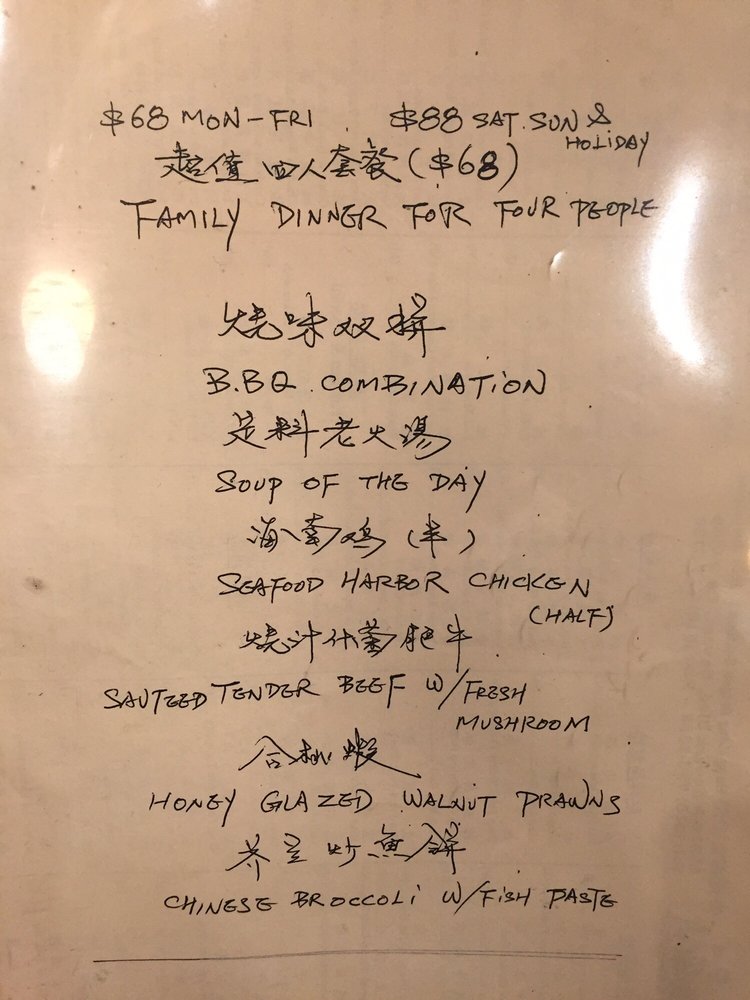 $68 MON-FRI. $88 SAT. SUN &
HOLIDAY
超值四人套餐($68)
FAMILY DINNER FOR FOUR PEOPLE
燒味双拼
B.BQ. COMBINATION
足料老火湯
SOUP OF THE DAY
海南鸡(半)
SEAFOOD HARBOR CHICKEN
(HALF)
燒汁什菌肥牛
SAUTEED TENDER BEEF W/FRESH
MUSHROOM
合桃蝦
HONEY GLAZED WALNUT PRAWNS
芥兰炒魚餅
CHINESE BROCCOLI W/FISH PASTE